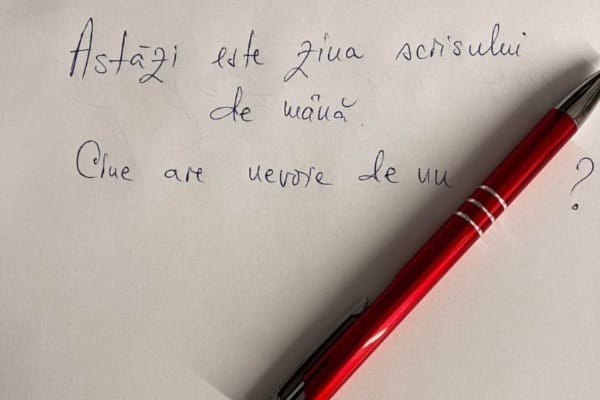 Astăzi este ziua scrisului
de mână.
Cine are nevoie de un ?